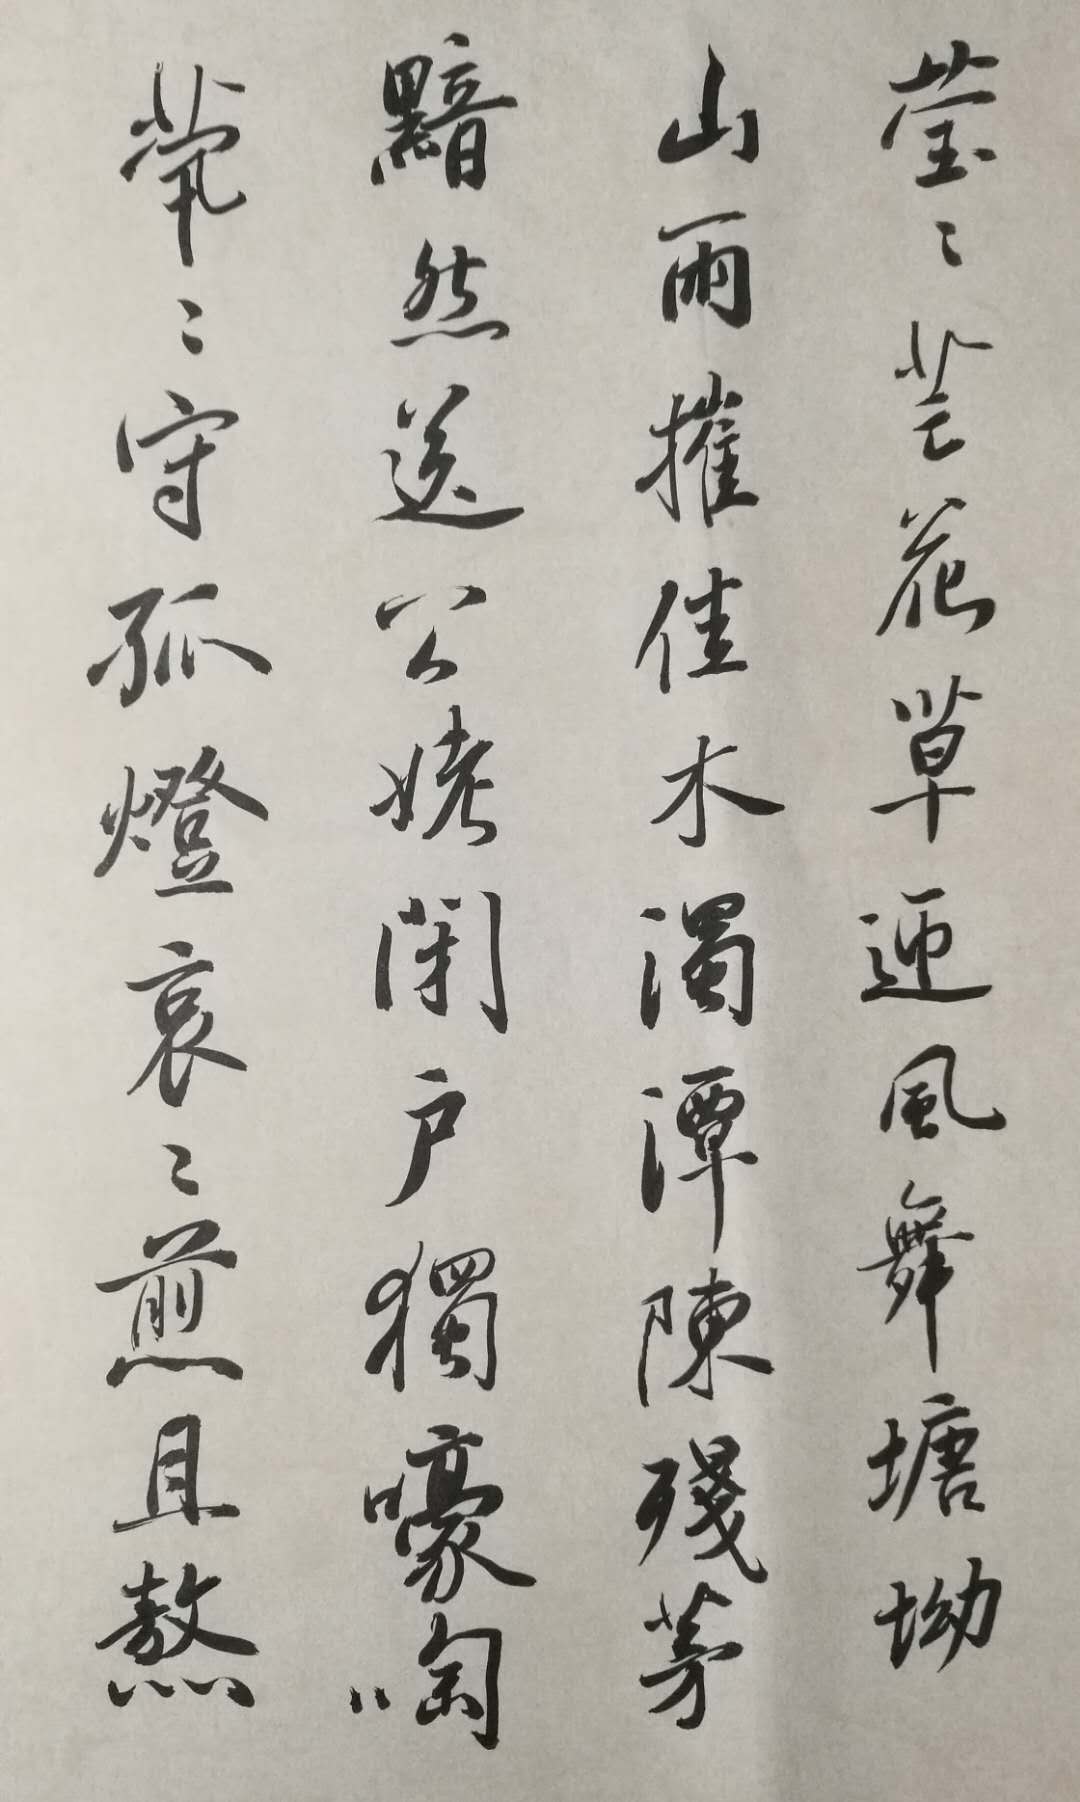 莹〻芸花草迎風舞塘坳
山雨摧佳木濁潭陳殘茅
黯然送公姥閉戶獨嚎啕
煢〻守孤燈哀〻煎且熬